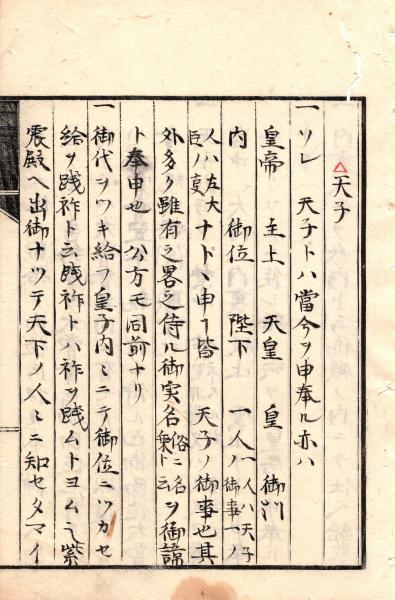 △天子
一ソレ 天子トハ當今ヲ申奉ル亦ハ
皇帝 主上 天皇 皇 御門
内 御位 陛下 一人ノ御事一ノ
人ハ左大臣ノ事 ナト丶申ㇾ皆 天子ノ御事也其
外多ク雖有之畧之侍ル御実名俗ニ名乗ト云ヲ御諱
ト奉申也 公方モ同前ナリ
一御代ヲツキ給フ皇子内ミニテ御位ニツカセ
給ヲ践祚ト云践祚トハ祚ヲ践ムトヨム也紫
震殿ヘ出御ナツテ天下ノ人ミニ知セタマイ